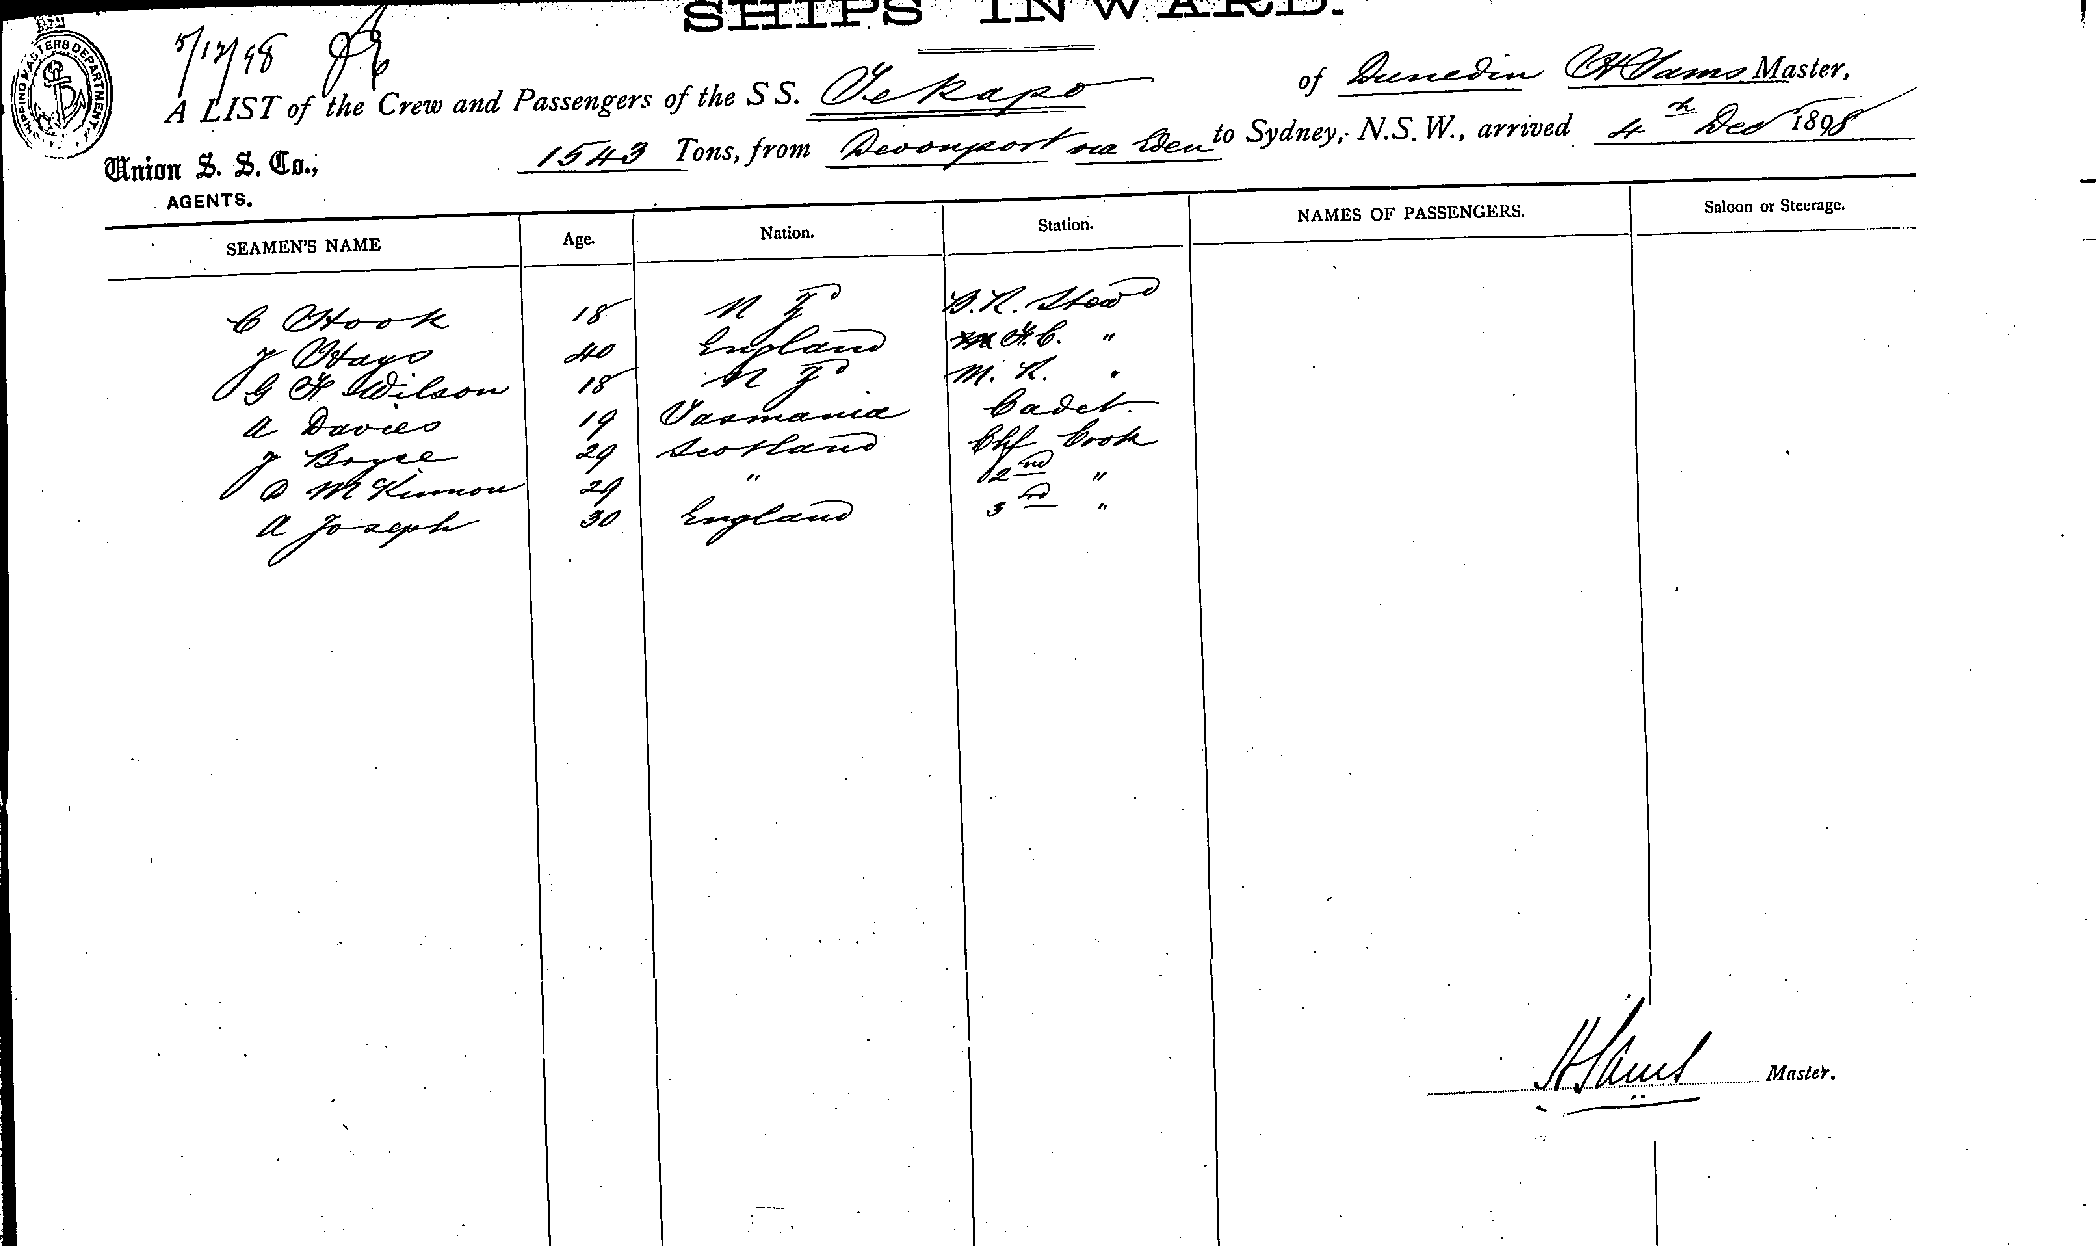 SHIPS INWARD.
5/12/98
SHIPPING MASTERS DEPARTMENT
A LIST of the Crew and Passengers of the S S. Tekapo of Dunedin H Sams Master,
Union S. S. Co., 1543 Tons, from Devonport via Eden to Sydney, N.S.W., arrived 4th Dec 1898
AGENTS.
SEAMEN'S NAME Age. Nation. Station. NAMES OF PASSENGERS. Saloon or Steerage.
C Hook 18 N Z B.R. Stewd
J Hays 40 England F.C. "
G F Wilson 18 N Z M. R. "
A Davies 19 Tasmania Cadet
J Boyce 29 Scotland Chf Cook
D McKinnon 29 " 2nd "
A Joseph 30 England 3rd "
H Sams Master.